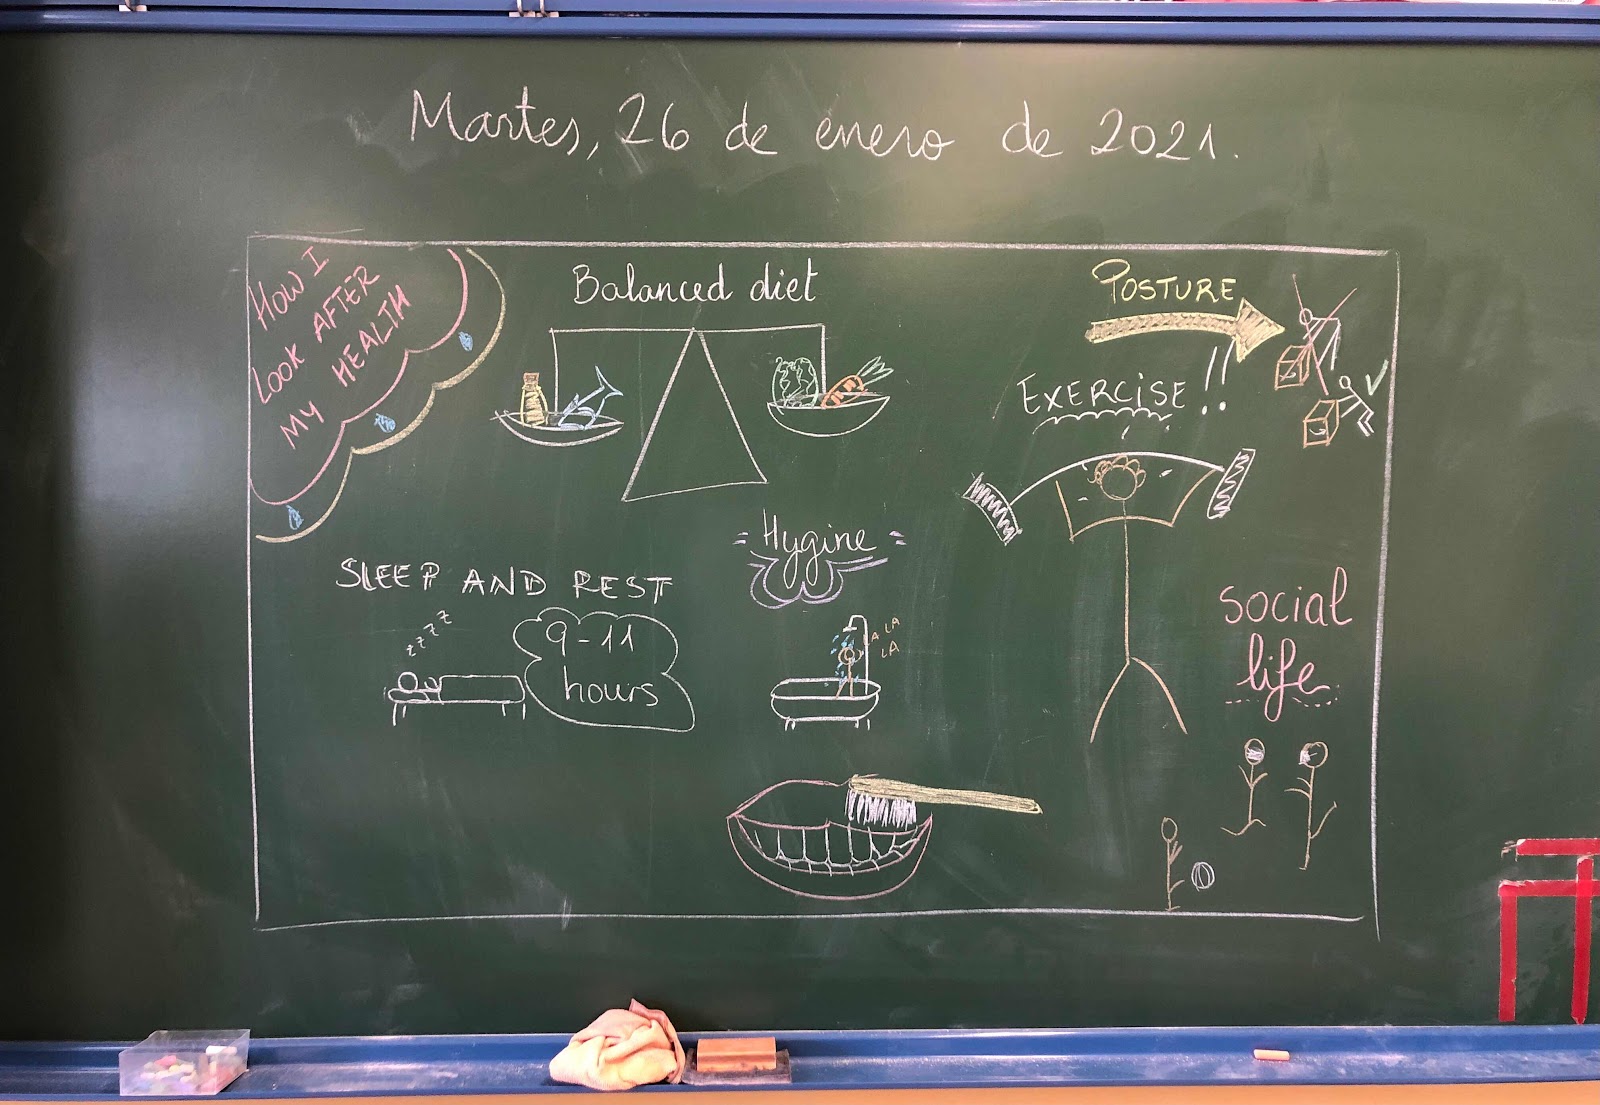 Martes, 26 de enero de 2021.
HOW I
LOOK AFTER
MY HEALTH
Balanced diet
POSTURE
EXERCISE!!
SLEEP AND REST
zzzz
9-11
hours
Hygine
LA LA
LA
social
life